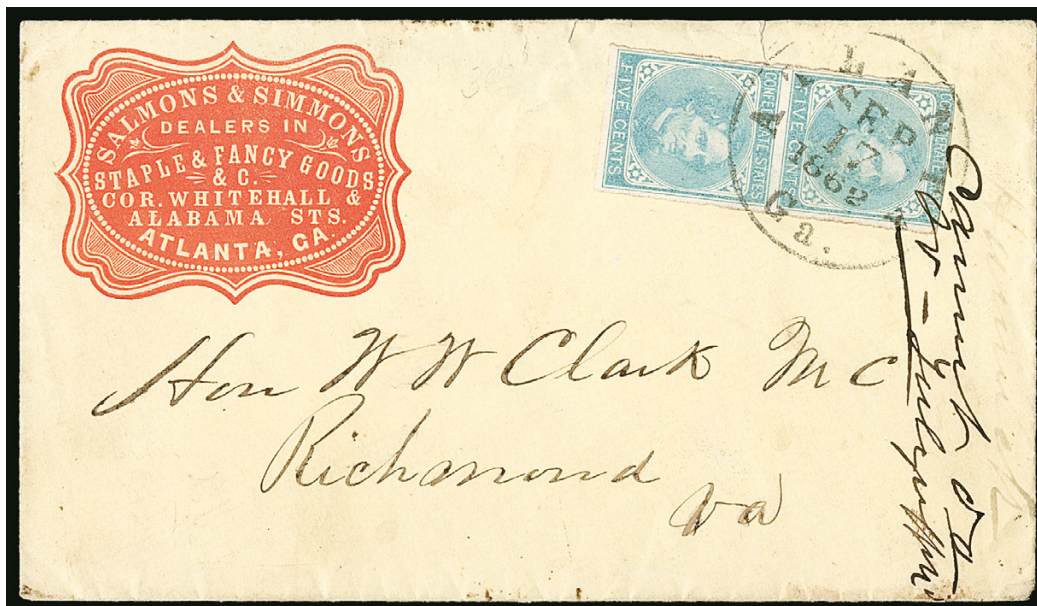 SALMONS & SIMMONS
DEALERS IN
STAPLE & FANCY GOODS
& C.
COR. WHITEHALL &
ALABAMA STS.
ATLANTA, GA.
FIVE CENTS
CONFEDERATE STATES
FIVE CENTS
ATLANTA
SEP
17
1862
Ga.
Hon W W Clark M C
Richmond
Va